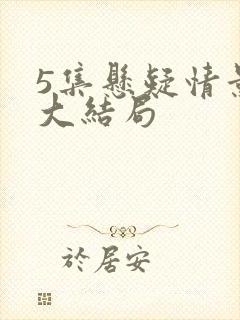 5集懸疑情景
大結局
於居安